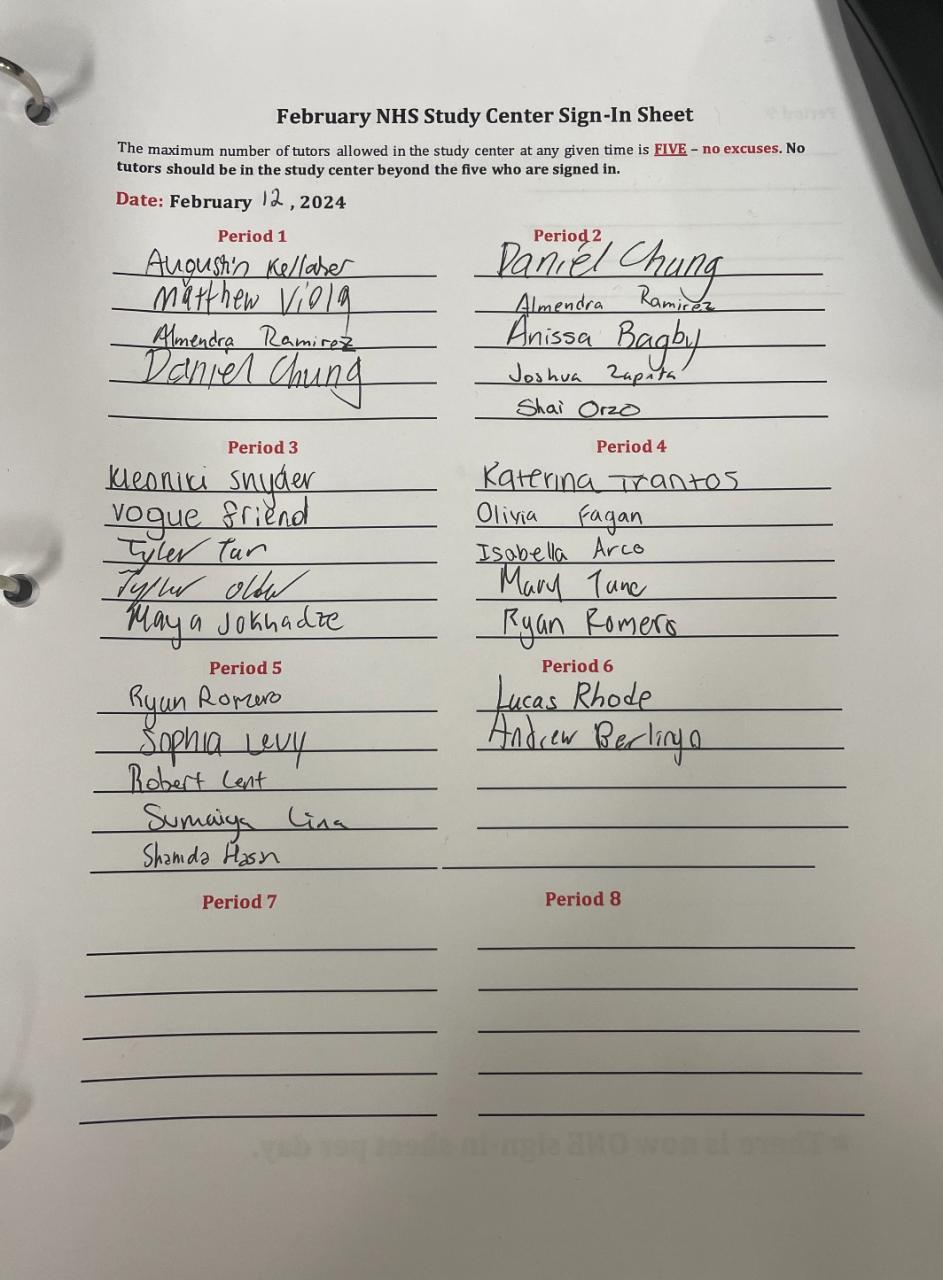 February NHS Study Center Sign-In Sheet
The maximum number of tutors allowed in the study center at any given time is FIVE – no excuses. No
tutors should be in the study center beyond the five who are signed in.
Date: February 12, 2024
Period 1
Augustin Kellaher
Matthew Viola
Almendra Ramirez
Daniel Chung
Period 2
Daniel Chung
Almendra Ramirez
Anissa Bagby
Joshua Zapata
Shai Orzo
Period 3
Kleoniki Snyder
Vogue friend
Tyler Tan
Tyler
Maya Jokhadze
Period 4
Katerina Trantos
Olivia Fagan
Isabella Arco
Mary
Ryan Romero
Period 5
Ryan Romero
Sophia Levy
Robert Cent
Sumaiya Lina
Shamda Hasn
Period 6
Lucas Rhode
Andrew
Period 7
Period 8
There is now ONE sign-in sheet per day.